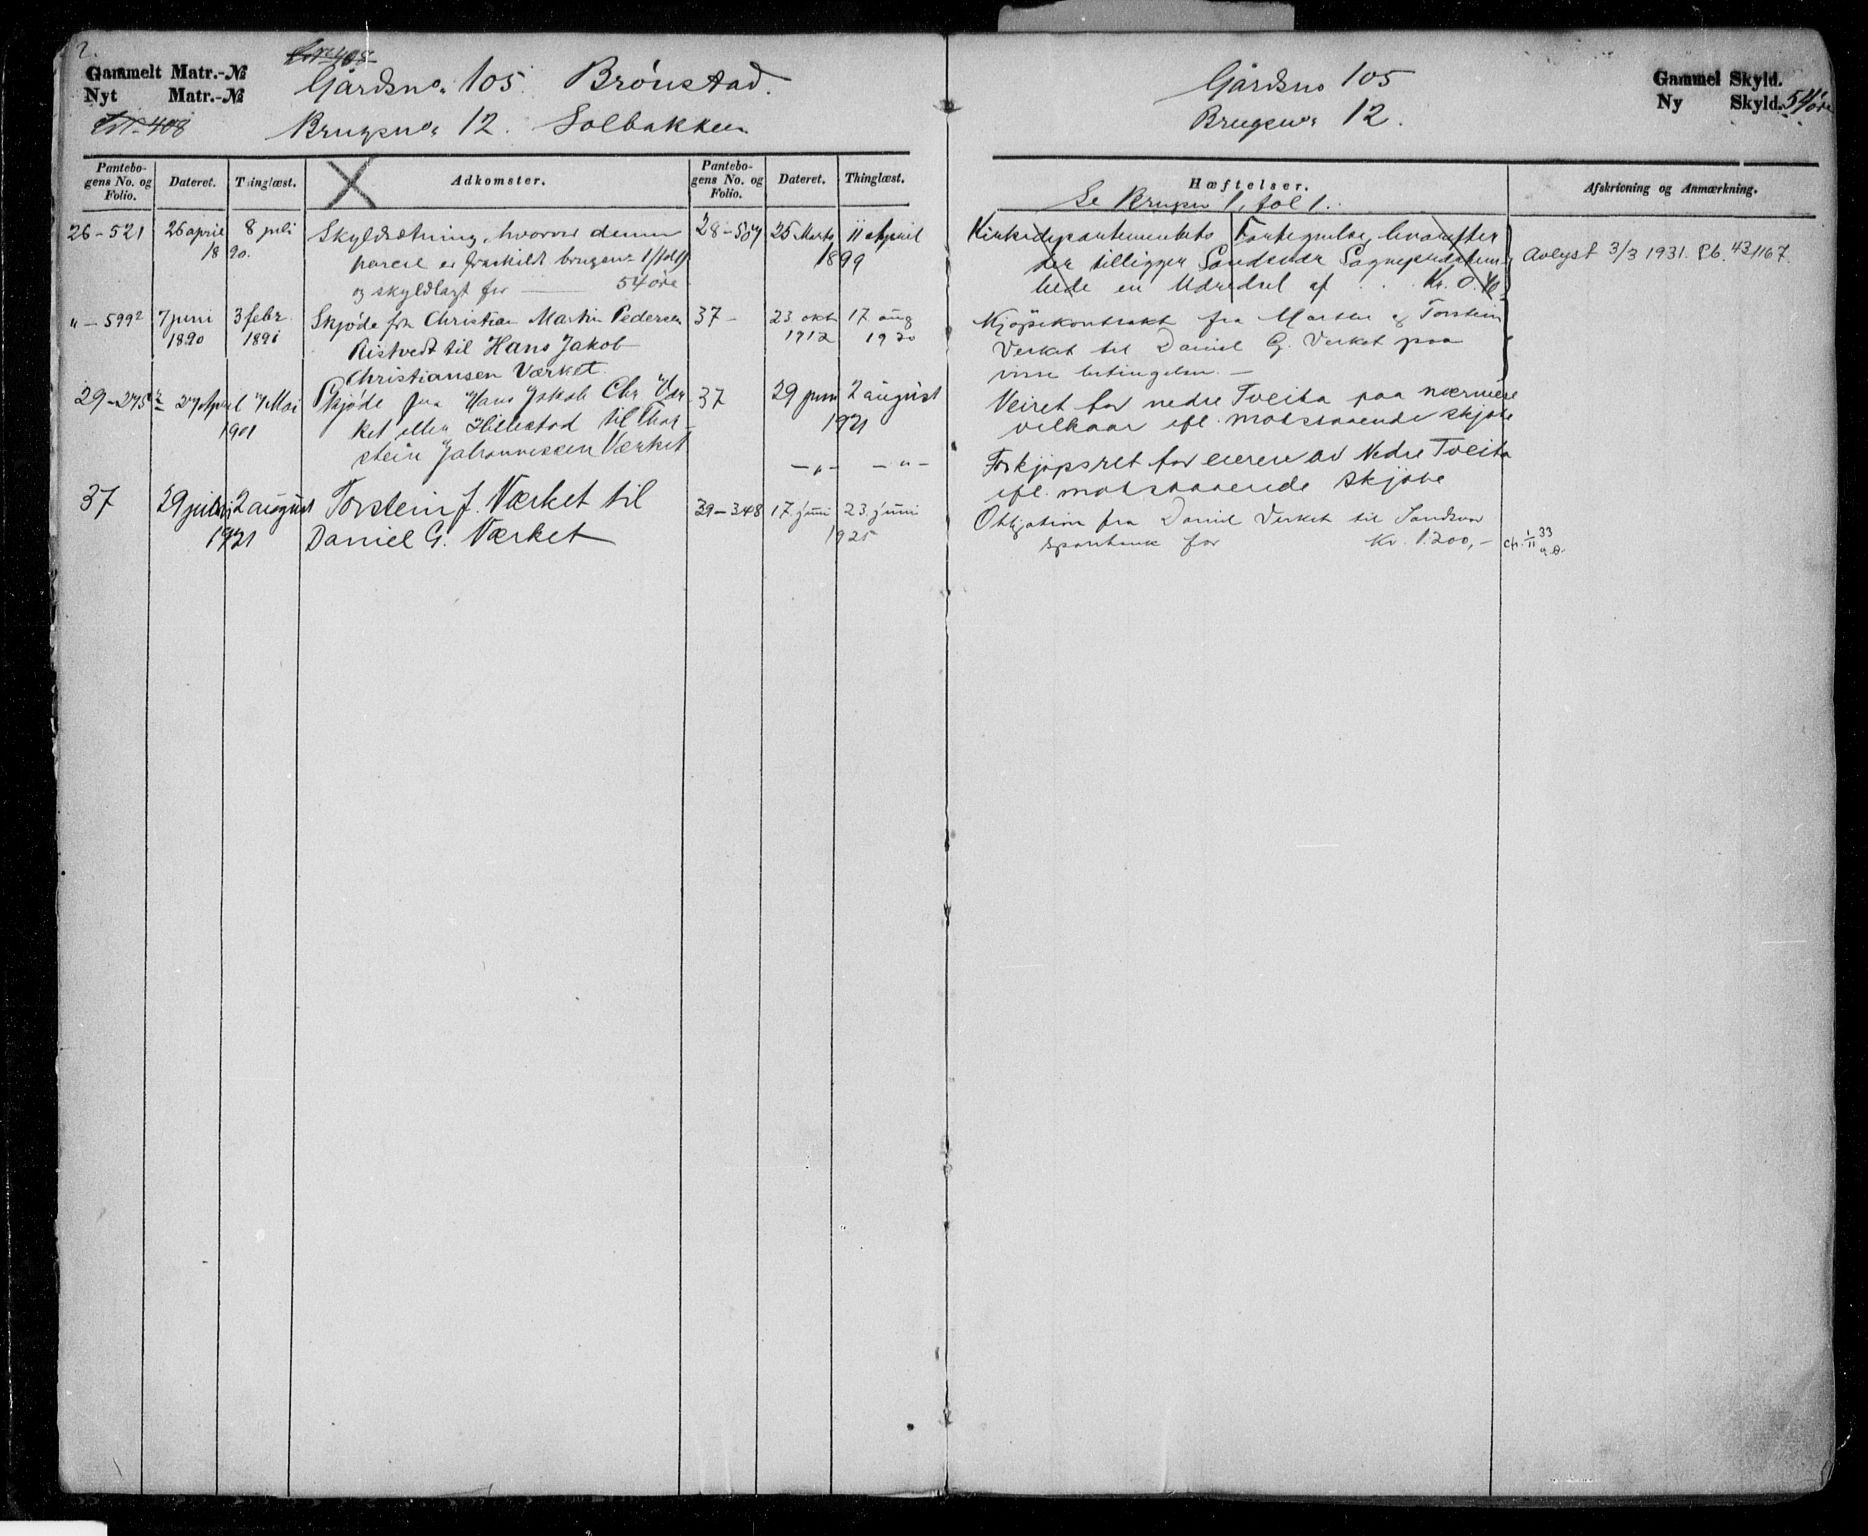 2.
Lnr. 408
Gammelt Matr.-№ Gårdsno. 105. Brönstad.
Nyt Matr.-№
Lnr. 408 Brugsno. 12. Solbakken
Pantebogens No. og Folio. Dateret. Thinglæst. Adkomster.
26-521 26 april 8 juli Skyldsætning, hvorved denne
1890. parcel er fraskilt brugsno 1 (fol 1)
og skyldlagt for 54 øre
" - 599² 7 juni 3 febr. Skjøde fra Christian Martin Pedersen
1890 1891 Ristvedt til Hans Jakob
Christiansen Værket.
29-275 27 April 7 Mai Skjøde fra Hans Jakob Chr. Vær
1901 ket eller Hillestad til Thor
stein Johannessen Værket
37 29 juni 2 august Torstein J. Værket til
1921 Daniel G. Værket
Pantebogens No. og Folio. Dateret. Thinglæst.
28-507 25 Marts 11 April
1899
37- 23 okt 17 aug
1912 1920
37 29 juni 2 august
1921
-"- -"-
39-348 17 juni 23 juni
1925
Gårdsno 105 Gammel Skyld.
Brugsno 12. Ny Skyld. 54 øre
Hæftelser. Afskrivning og Anmærkning.
Se Brugsn 1, fol 1.
Kirkedepartementets Fortegnelse, hvorefter
der tilligger Sandsvær Sogneprestem-
bede en Udredsel af . . Kr. 0.
Avlyst 3/3 1931. Pb. 43/167.
Kjøpekontrakt fra Marthe og Torstein
Verket til Daniel G. Verket paa
visse betingelser. -
Veiret for nedre Tveita paa nærmere
vilkaar efl. motstaaende skjøte
Forkjøpsret for eieren av Nedre Tveita
efl. motstaaende skjøte
Obligation fra Daniel Verket til Sandsvær
sparebank for Kr. 1200,-